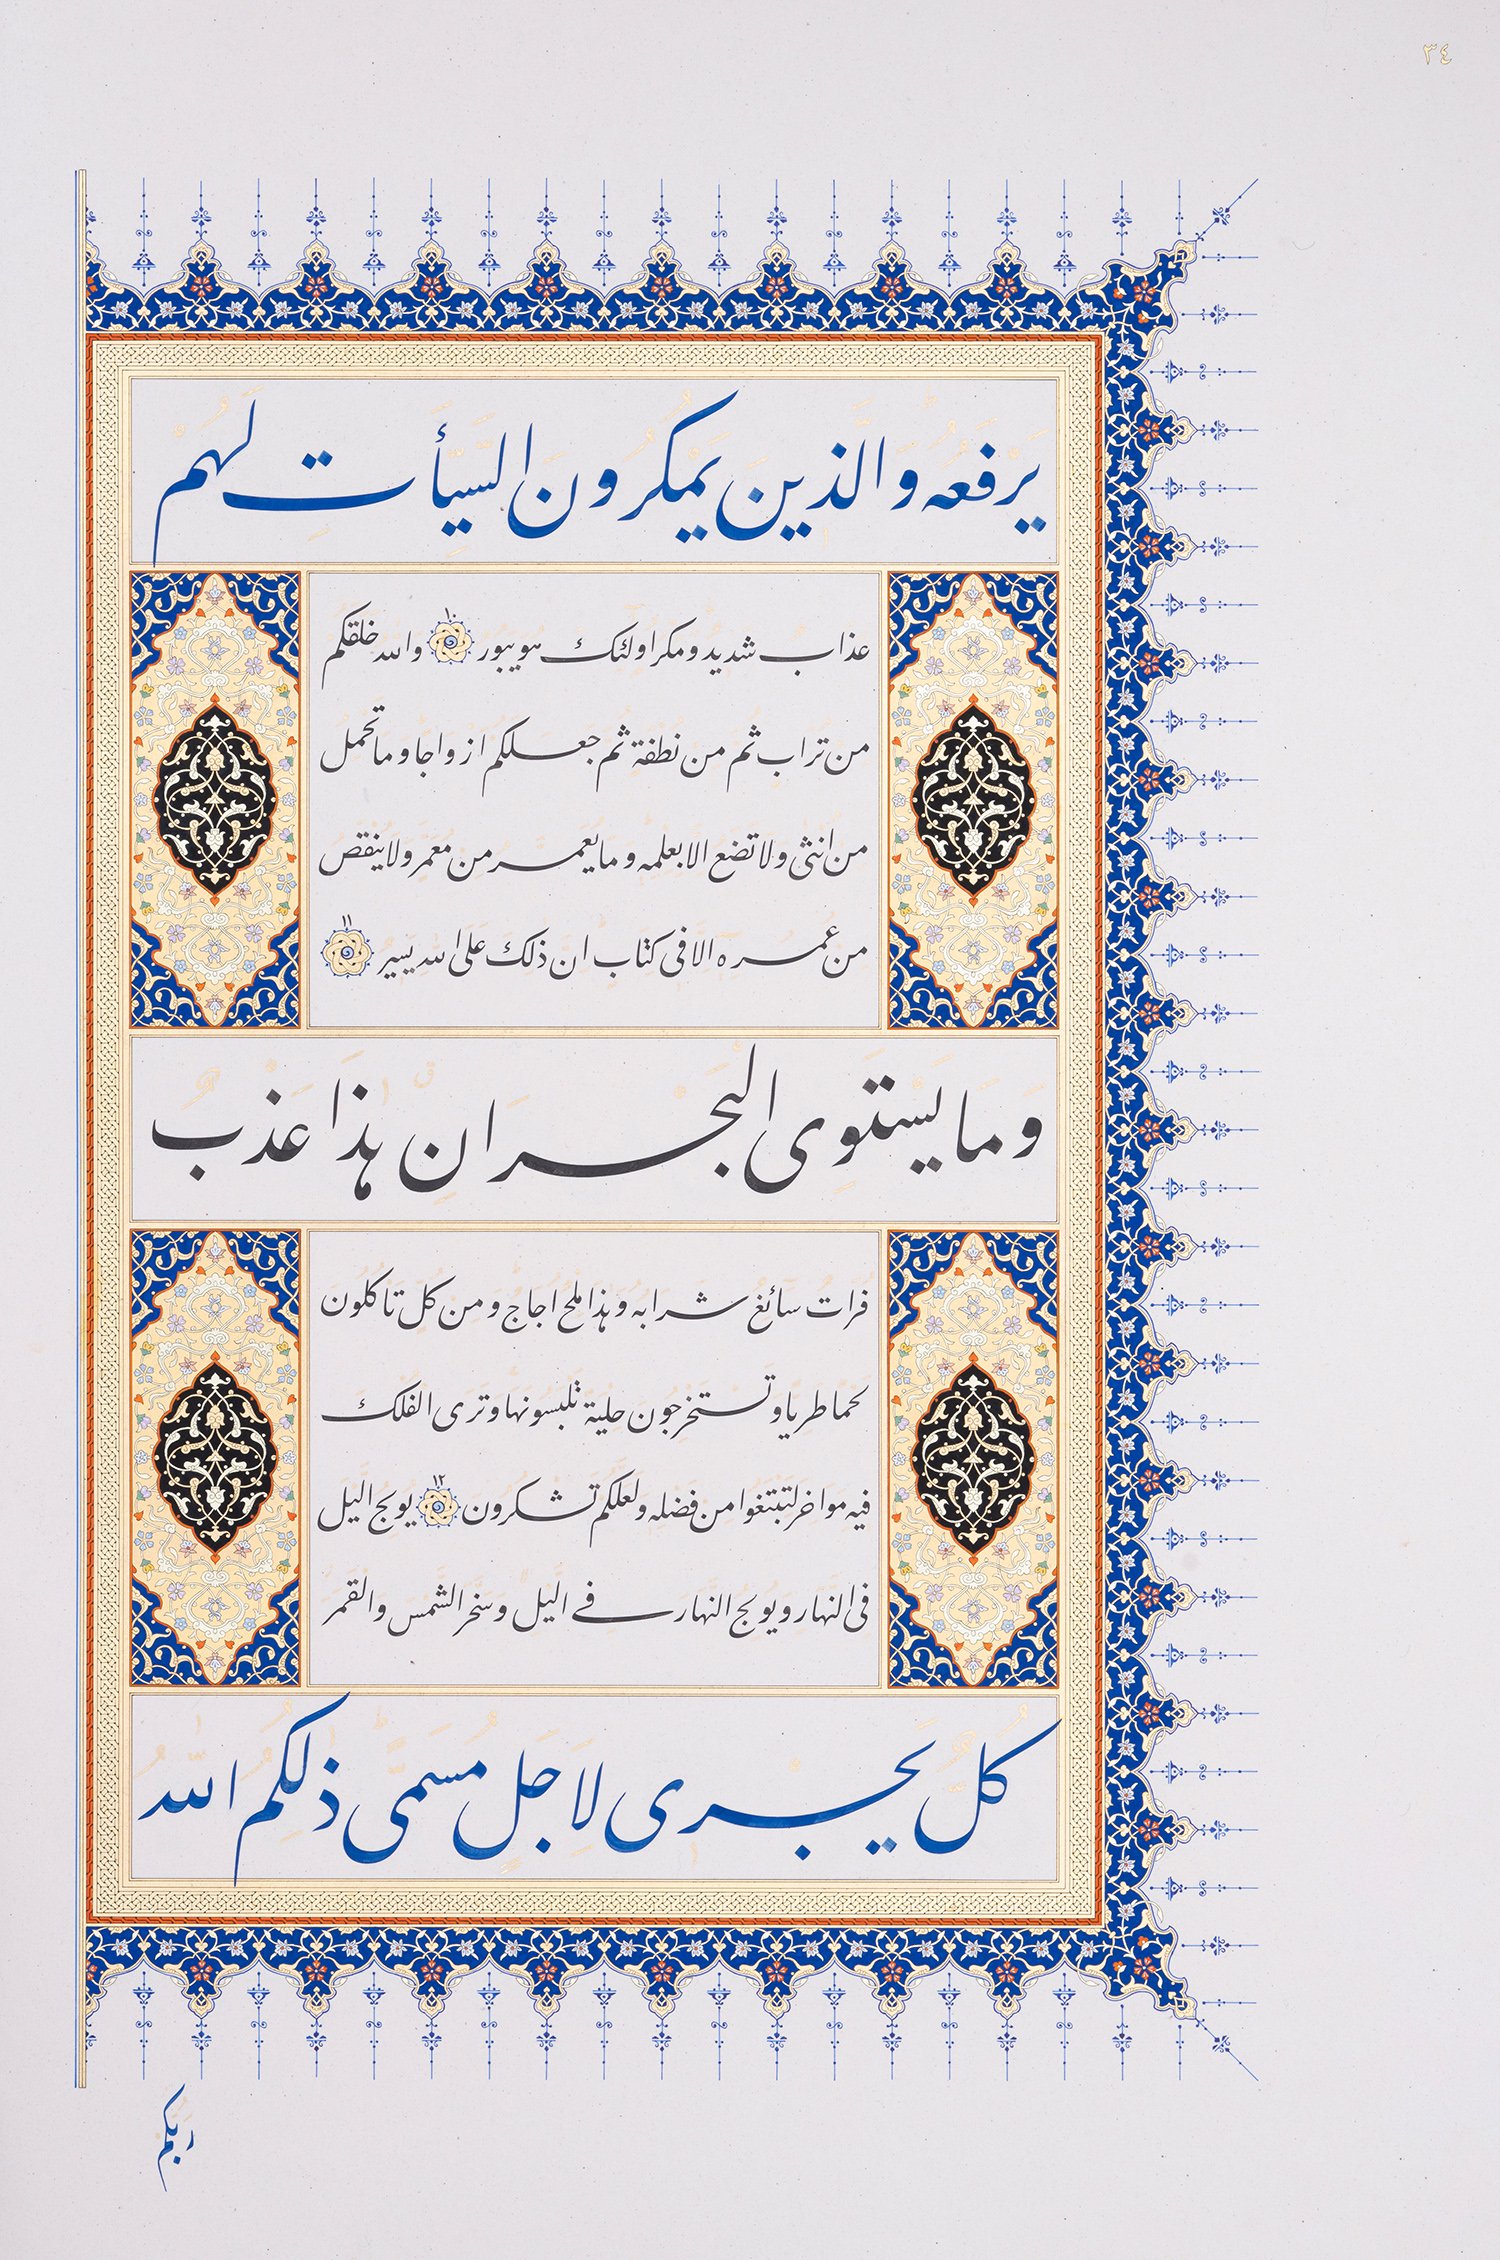 ٣٤
يَرْفَعُهُ وَالَّذينَ يَمْكُرُونَ السَّيِّأَتِ لَهُمْ
عذاب شديد ومكر اولئك هو يبور ١٠ والله خلقكم
من تراب ثم من نطفة ثم جعلكم ازواجا وما تحمل
من انثى ولا تضع الا بعلمه وما يعمر من معمر ولا ينقص
من عمره الا فى كتاب ان ذلك على الله يسير ١١
وَمَا يَسْتَوِى الْبَحْرَانِ هٰذَا عَذْبٌ
فرات سآئغ شرابه وهذا ملح اجاج ومن كل تاكلون
لحما طريا وتستخرجون حلية تلبسونها وترى الفلك
فيه مواخر لتبتغوا من فضله ولعلكم تشكرون ١٢ يولج اليل
فى النهار ويولج النهار فے اليل وسخر الشمس والقمر
كُلٌّ يَجْرى لِاَجَلٍ مُسَمًّى ذٰلِكُمُ اللّٰهُ
رَبُّكُمْ